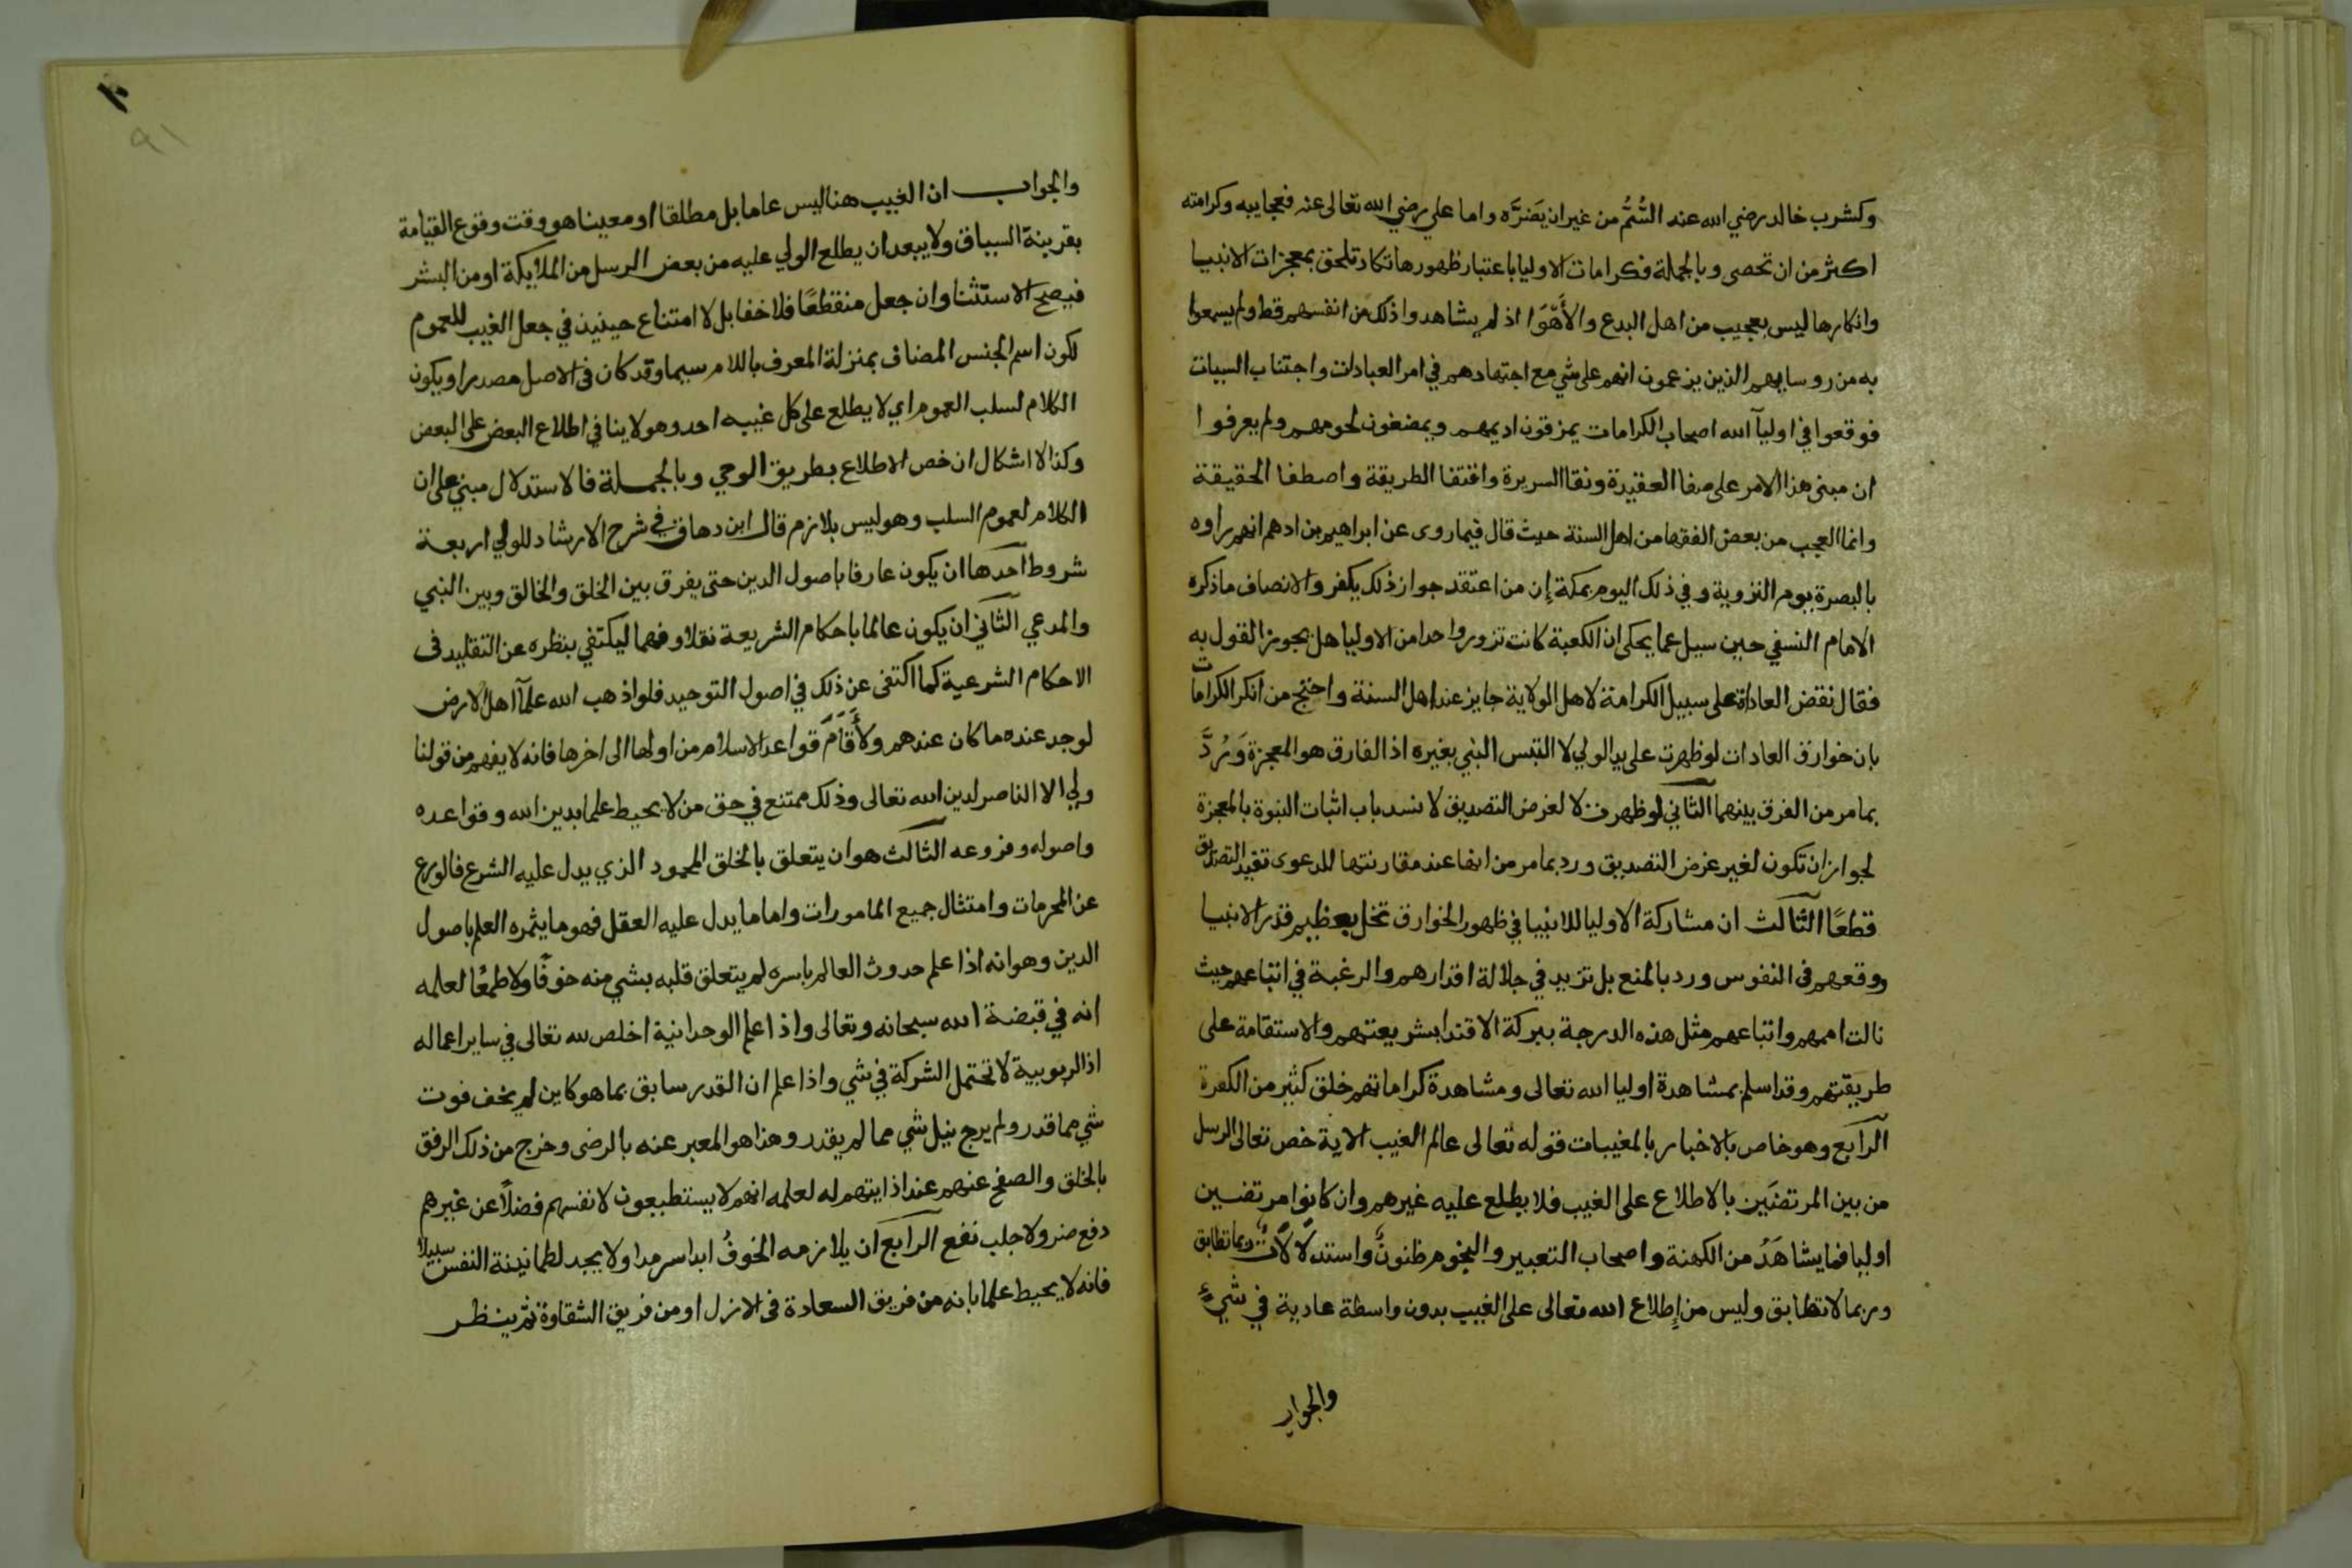 وكشرب خالد رضي الله عنه السُّمَّ من غير ان يَضرَّه واما علي رضي الله تعالى عنه فعجايبه وكرامته
اكثر من ان تحصى وبالجملة فكرامات الاوليا باعتبار ظهورها تكاد تلحق بمعجزات الانبيا
وانكارها ليس بعجيب من اهل البدع والأَهْوَا اذ لم يشاهدوا ذلك من انفسهم قط ولم يسمعوا
به من روسايهم الذين يزعمون انهم على شي مع اجتهادهم في امر العبادات واجتناب السيات
فوقعوا في اوليآ الله اصحاب الكرامات يمزقون اديمهم ويمضغون لحومهم ولم يعرفوا
ان مبنى هذا الامر على صفا العقيدة ونقا السريرة واقتفا الطريقة واصطفا الحقيقة
وانما العجب من بعض الفقها من اهل السنة حيث قال فيما روى عن ابراهيم بن ادهم انهم راوه
بالبصرة يوم التروية وفي ذلك اليوم بمكة إن من اعتقد جواز ذلك يكفر والانصاف ما ذكره
الامام النسفي حين سيل عما يحكى ان الكعبة كانت تزور واحدا من الاوليا هل يجوز القول به
فقال نقض العادة على سبيل الكرامة لاهل الولاية جايز عند اهل السنة واحتج من انكر الكرامات
بان خوارق العادات لو ظهرت على يد الولي لا التبس النبي بغيره اذ الفارق هو المعجزة وَرُدَّ
بما مر من الفرق بينهما الثاني لو ظهرت لا لغرض التصديق لا نسد باب اثبات النبوة بالمعجزة
لجواز ان تكون لغير غرض التصديق ورد بما مر من انها عند مقارنتها للدعوى تفيد التصديق
قطعًا الثالث ان مشاركة الاوليا للانبيا في ظهور الخوارق تخل بعظيم قدر الانبيا
ووقعهم في النفوس ورد بالمنع بل تزيد في جلالة اقدارهم والرغبة في اتباعهم حيث
نالت اممهم واتباعهم مثل هذه الدرجة ببركة الاقتدا بشريعتهم والاستقامة على
طريقتهم وقد اسلم بمشاهدة اوليا الله تعالى ومشاهدة كراماتهم خلق كثير من الكفرة
الرابع وهو خاص بالاخبار بالمغيبات قوله تعالى عالم الغيب الاية خص تعالى الرسل
من بين المرتضَين بالاطلاع على الغيب فلا يطلع عليه غيرهم وان كانوا مرتضين
اوليا فما يشاهَدُ من الكهنة واصحاب التعبير والنجوم ظنونٌ واستدلالاتٌ ربما تطابق
وربما لا تطابق وليس من إِطلاع الله تعالى على الغيب بدون واسطة عادية في شيءٍ
والجواب
٩١
والجواب ان الغيب هنا ليس عاما بل مطلقا او معينا هو وقت وقوع القيامة
بقرينة السياق ولا يبعد ان يطلع الولي عليه من بعض الرسل من الملايكة او من البشر
فيصح الاستثنا وان جعل منقطعًا فلا خفا بل لا امتناع حينيذ في جعل الغيب للعموم
لكون اسم الجنس المضاف بمنزلة المعرف باللام سيما وقد كان في الاصل مصدرا ويكون
الكلام لسلب العموم اي لا يطلع على كل غيبه احد وهو لا ينافي اطلاع البعض على البعض
وكذا لا اشكال ان خص الاطلاع بطريق الوحي وبالجملة فالاستدلال مبني على ان
الكلام لعموم السلب وهو ليس بلازم قال ابن دهاق في شرح الارشاد للولي اربعة
شروط احدها ان يكون عارفا باصول الدين حتى يفرق بين الخلق والخالق وبين النبي
والمدعي الثاني ان يكون عالما باحكام الشريعة نقلا وفهما ليكتفي بنظره عن التقليد في
الاحكام الشرعية كما اكتفى عن ذلك في اصول التوحيد فلو اذهب الله علمآ اهل الارض
لوجد عنده ما كان عندهم ولأَقَامَ قواعد الاسلام من اولها الى اخرها فانه لا يفهم من قولنا
ولي الا الناصر لدين الله تعالى وذلك ممتنع في حق من لا يحيط علما بدين الله وقواعده
واصوله وفروعه الثالث هو ان يتعلق بالخلق المحمود الذي يدل عليه الشرع فالورع
عن المحرمات وامتثال جميع المامورات واما ما يدل عليه العقل فهو ما يثمره العلم باصول
الدين وهو انه اذا علم حدوث العالم باسره لم يتعلق قلبه بشي منه خوفًا ولا طمعًا لعلمه
انه في قبضة الله سبحانه وتعالى واذا علم الوحدانية اخلص لله تعالى في ساير اعماله
اذ الربوبية لا تحتمل الشركة في شي واذا علم ان القدر سابق بما هو كاين لم يخف فوت
شي مما قدر ولم يرج نيل شي مما لم يقدر وهذا هو المعبر عنه بالرضى وخرج من ذلك الرفق
بالخلق والصفح عنهم عند اذايتهم له لعلمه انهم لا يستطيعون لانفسهم فضلاً عن غيرهم
دفع ضر ولا جلب نفع الرابع ان يلازمه الخوفُ ابدا سرمدا ولا يجد لطمانينة النفس سبيلا
فانه لا يحيط علما بانه من فريق السعادة في الازل او من فريق الشقاوة ثم ينظر